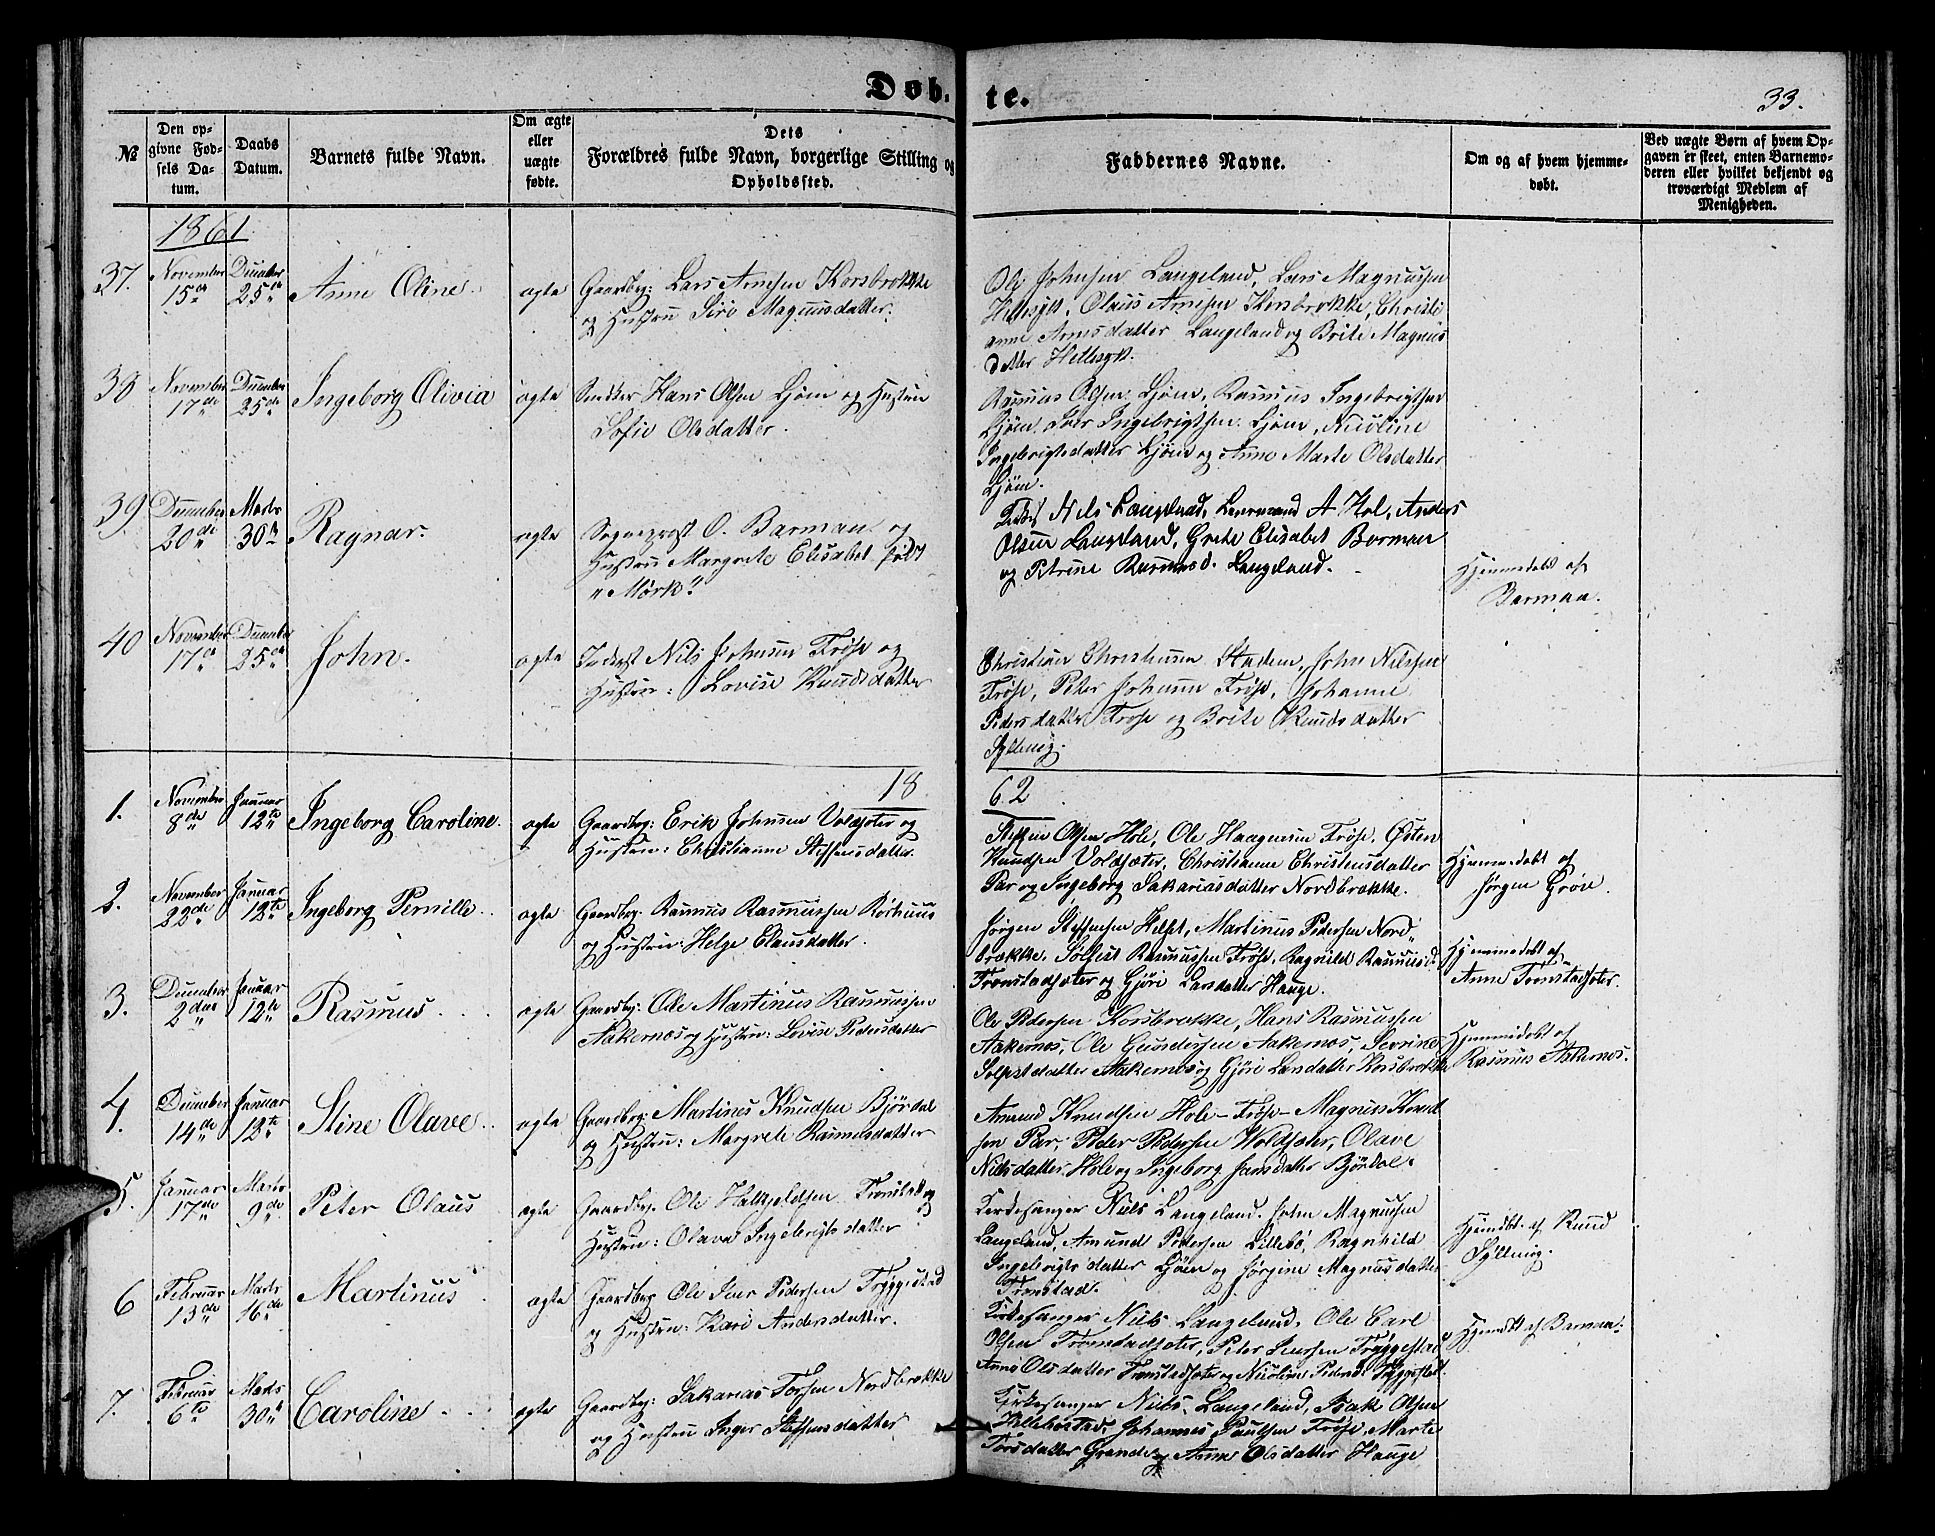 Døb. te.
33.
№
Den opgivne Fødsels Datum.
Daabs Datum.
Barnets fulde Navn.
Om ægte eller uægte fødte.
Dets Forældres fulde Navn, borgerlige Stilling og Opholdssted.
Faddernes Navne.
Om og af hvem hjemmedøbt.
Ved uægte Børn af hvem Opgaven er skeet, enten Barnemoderen eller hvilket bekjendt og troværdigt Medlem af Menigheden.
1861
37. November 15de December 25de Anne Oline. ægte
Gaardbr: Lars Arnesen Korsbrække
og Hustru Siri Magnusdatter.
Ole Johnsen Langeland, Lars Magnussen
Hellesylt, Olaus Arnesen Korsbrække, Christi
anne Arnesdatter Langeland og Brite Magnus
datter Hellesylt.
38 November 17de December 25de Ingeborg Olivia ægte
Hans Olsen Ljøen og Hustru
Sofie Olsdatter.
Rasmus Olsen Ljøen, Rasmus Ingebrigtsen
Ljøen, Iver Ingebrigtsen Ljøen, Nicoline
Ingebrigtsdatter Ljøen og Anne Marte Olsdatter
Ljøen.
39 December 20de Marts 30te Ragnar. ægte
Sogneprest O. Barman og
Hustru Margrete Elisabet født
"Mørk"
Nils Langeland, Lensmand A Hol, Anders
Olsen Langeland, Grete Elisabet Barman
og Petrine Rasmusd. Langeland.
Hjemmedøbt af
Barman.
40 November 17de December 25de John. ægte
Inderst Nils Johnsen Frøse og
Hustru: Lovise Knudsdatter
Christian Christensen Stadem, John Nilssen
Frøse, Peter Johnsen Frøse, Johanne
Pedersdatter Frøse og Brite Knudsdatter
Sylleng.
1862
1. November 8de Januar 12te Ingeborg Caroline. ægte
Gaardbr: Erik Johnsen Voldsæter og
Hustru: Christianne Steffensdatter.
Steffen Olsen Hole, Ole Haagensen Frøse, Østen
Knudsen Voldsæter, Christianne Christensdatter
Par og Ingeborg Sakariasdatter Nordbrække.
Hjemmedøbt af
Jørgen Grøse.
2. November 22de Januar 12te Ingeborg Pernille. ægte
Gaardbr: Rasmus Rasmussen Rørhuus
og Hustru: Helge Clausdatter.
Jørgen Steffensen Helset, Martinus Pedersen Nord
brække, Solfest Rasmussen Frøse, Ragnild Rasmusd.
Tronstadsæter og Gjøri Larsdatter Hauge.
Hjemmedøbt af
Anne Tronstadsæter.
3. December 2den Januar 12te Rasmus ægte
Gaardbr: Ole Martinus Rasmussen
Aakernæs og Hustru: Lovise Pedersdatter
Ole Pedersen Korsbrække, Hans Rasmussen
Aakernæs, Ole Gundersen Aakernæs, Severine
Solfestdatter Aakernæs og Gjøri Larsdatter Korsbrække
Hjemmedøbt af
Rasmus Aakernæs.
4. December 14de Januar 12te Stine Olave. ægte
Gaardbr: Martinus Knudsen Bjørdal
og Hustru: Margrete Rasmusdatter
Amund Knudsen Hole - Frøse - Magnus Knud
sen Par, Peder Pedersen Woldsæter, Olave
Nilsdatter Hole og Ingeborg Jansdatter Bjørdal.
5. Januar 17de Marts 9de Peter Olaus ægte
Gaardbr. Ole Halkjeldsen Tronstad og
Hustru: Olave Ingebrigtsdatter
Kirkesanger Niels Langeland. John Magnusen
Langeland, Amund Pedersen Lillebø, Ragnhild
Ingebrigtsdatter Ljøen og Jørgine Magnusdatter
Tronstad.
Hjemdbt. af Knud
Sylleng.
6 Februar 13de Marts 16de Martinus ægte
Gaardbr. Ole Iver Pedersen Tryggestad
og Hustru: Kari Andersdatter.
Kirkesanger Niels Langeland, Ole Carl
Olsen Tronstadsæter, Peter Iversen Tryggestad
Anne Olsdatter Tronstadsæter og Nicoline Pedersd. Tryggestad.
Hjemdbt af Barman.
7. Februar 6te Marts 30te Caroline ægte
Gaardbr: Sakarias Torsen Nordbrække
og Hustru Inger Steffensdatter
Kirkesanger Niels Langeland, Isak Olsen
Hellebostad, Johannes Paulsen Frøse, Marte
Torsdatter Grande og Anne Olsdatter Hauge